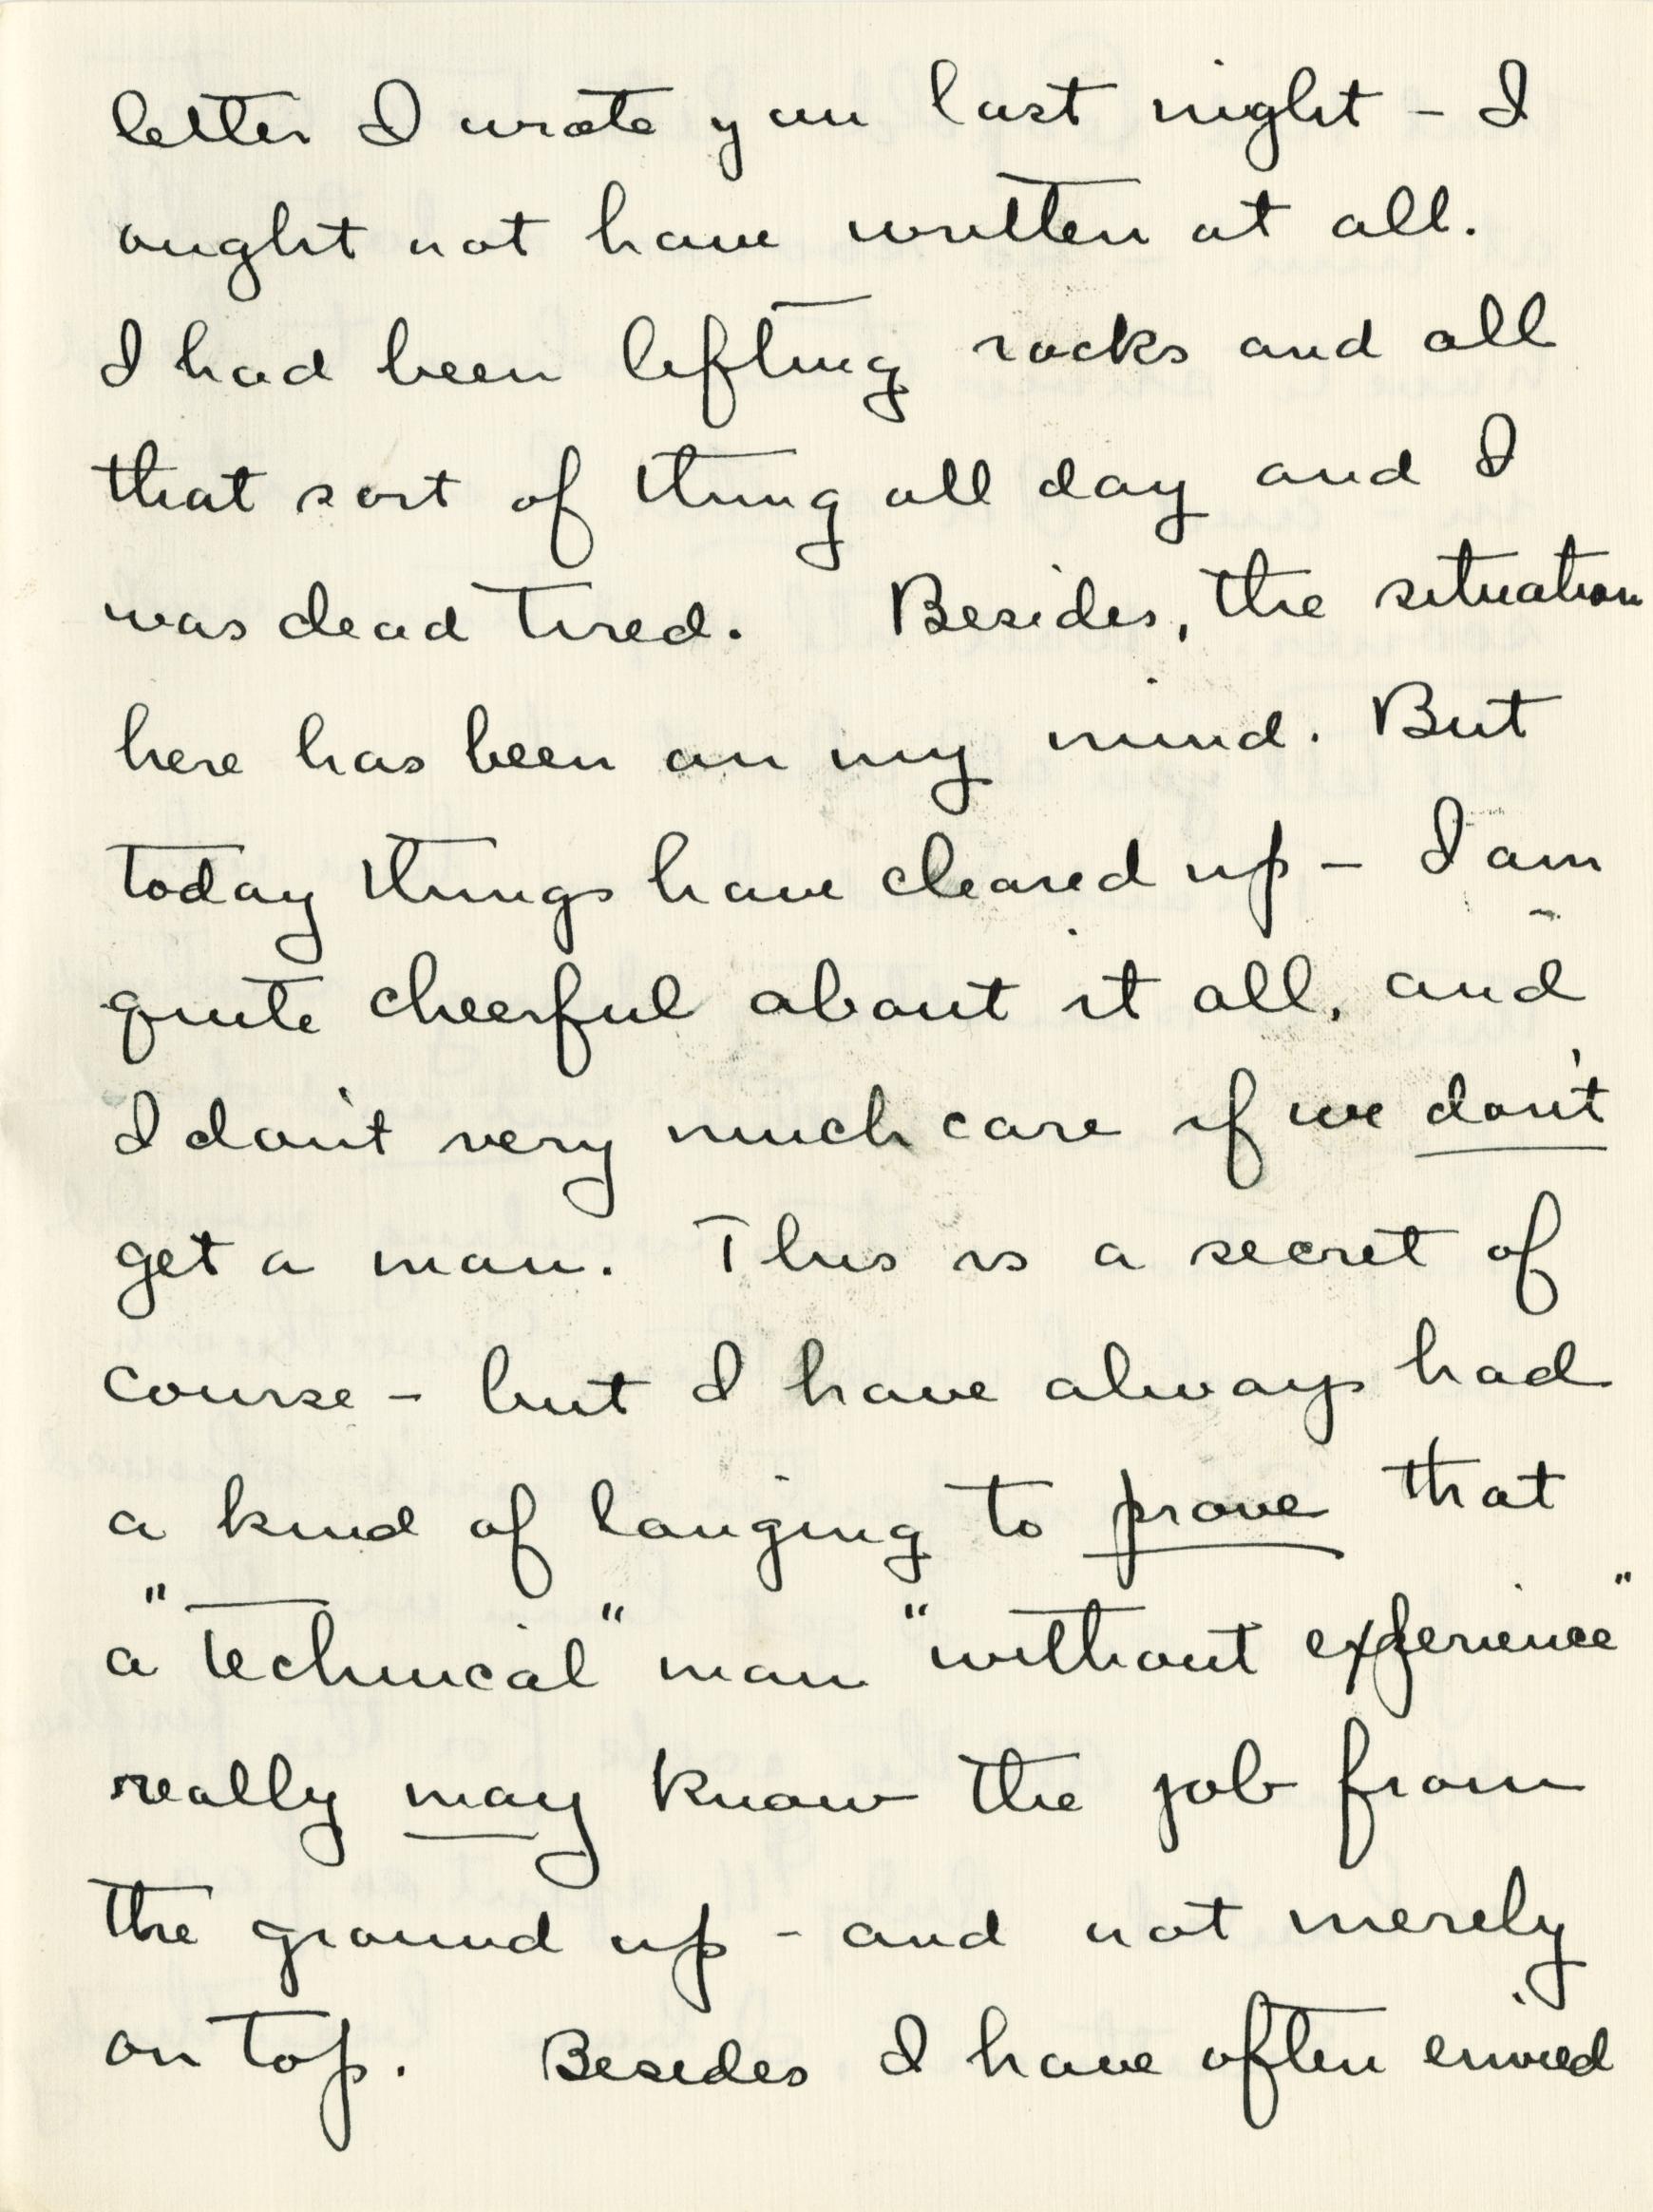 letter I wrote you last night - I
ought not have written at all.
I had been lifting rocks and all
that sort of thing all day and I
was dead tired. Besides, the situation
here has been on my mind. But
today things have cleared up - I am
quite cheerful about it all, and
I don't very much care if we don't
get a man. This is a secret of
course - but I have always had
a kind of longing to prove that
a "technical" man "without experience"
really may know the job from
the ground up - and not merely
on top. Besides I have often envied